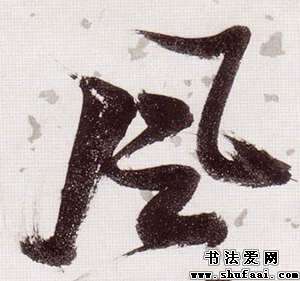 风
书法爱网
www.shufaai.com